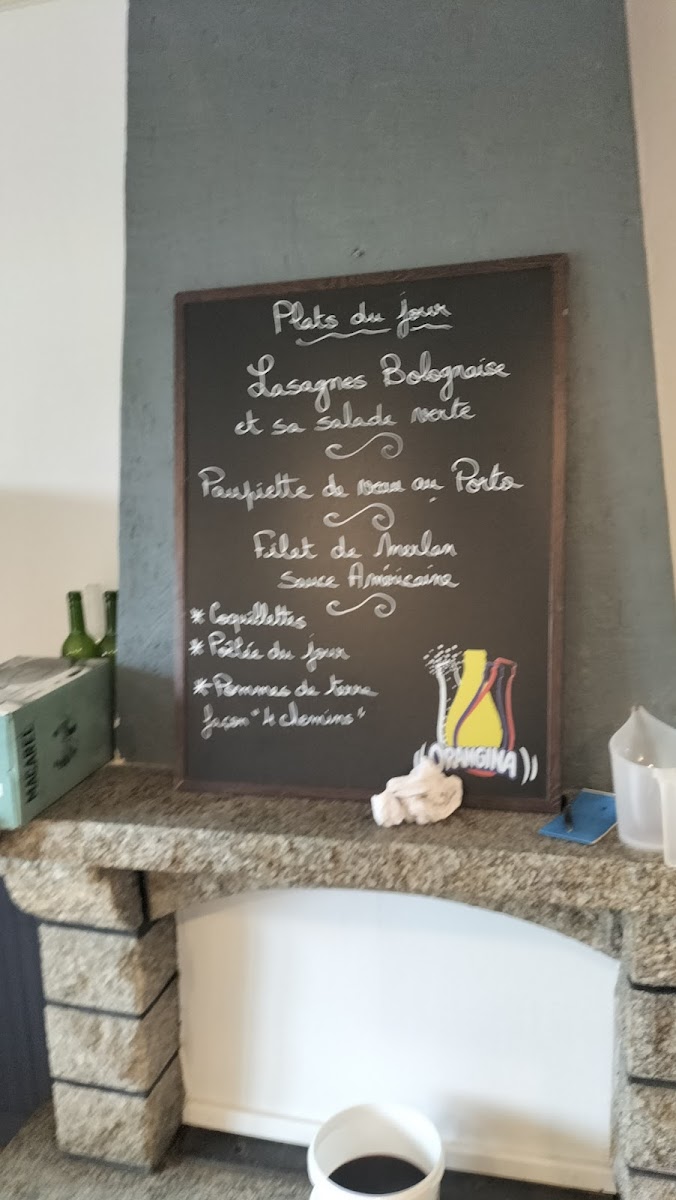 Plats du jour
Lasagnes Bolognaise
et sa salade verte
Paupiette de veau au Porto
Filet de Merlan
sauce Américaine
* Coquillettes
* Poêlée du jour
* Pommes de terre
façon "4 chemins"
ORANGINA
MACAREL